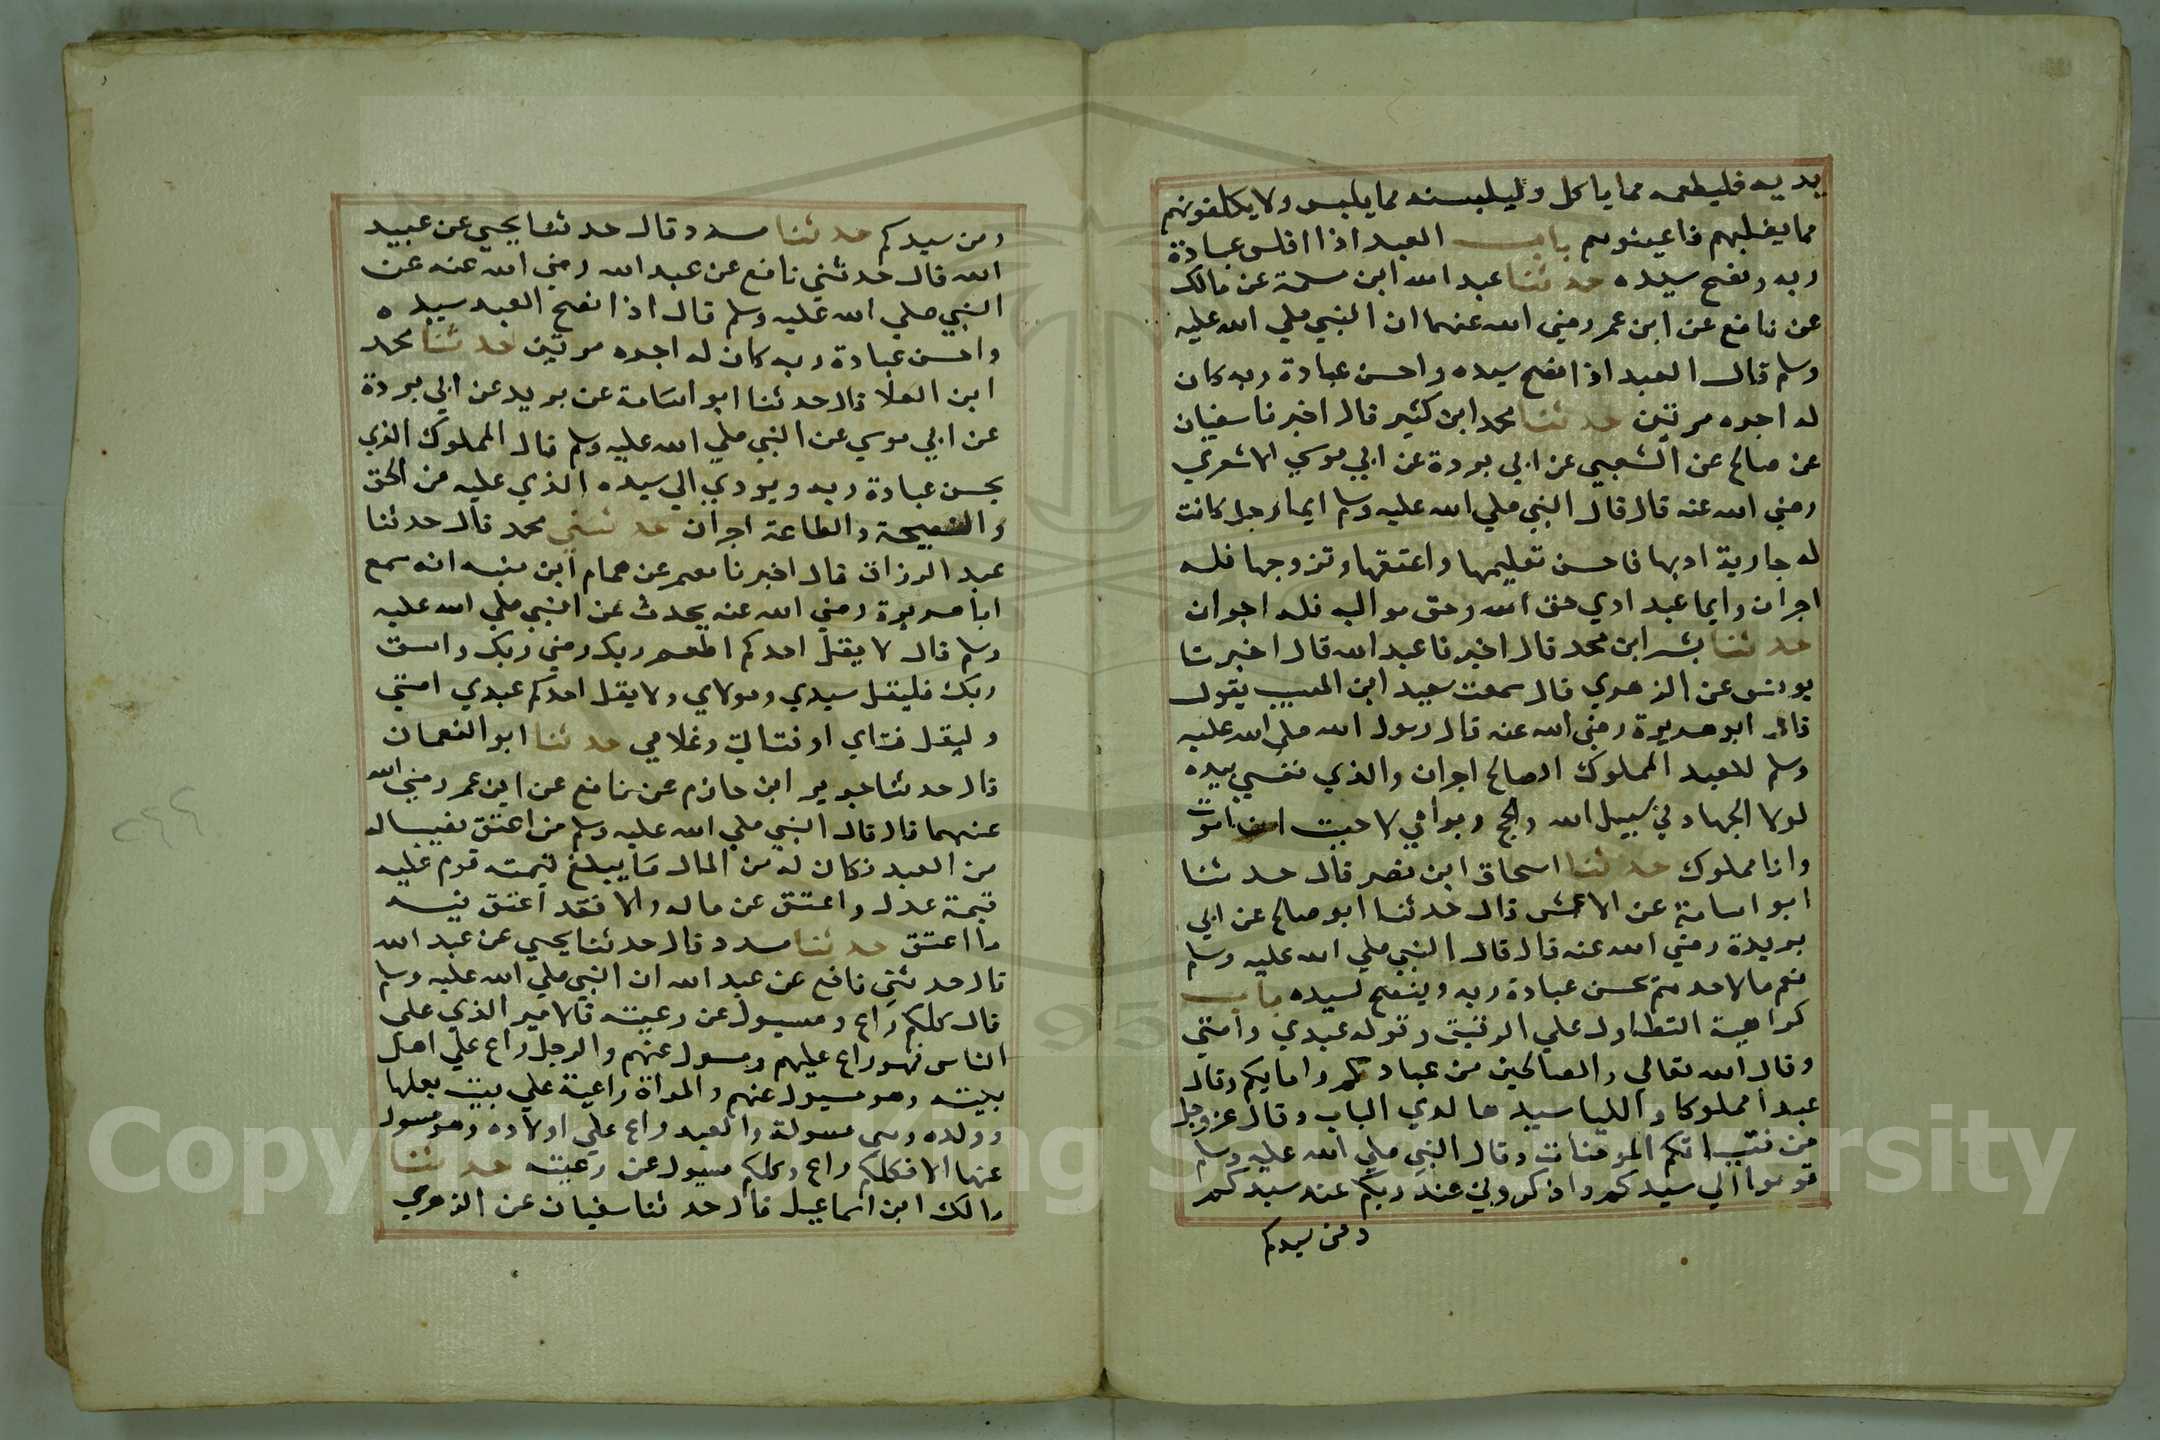 يديه فليطعمه مما ياكل وليلبسه مما يلبس ولا يكلفونهم
مما يغلبهم فاعينوهم باب العبد اذا احسن عبادة
ربه ونصح سيده حدثنا عبد الله ابن مسلمة عن مالك
عن نافع عن ابن عمر رضي الله عنهما ان النبي صلي الله عليه
وسلم قال العبد اذا نصح سيده واحسن عبادة ربه كان
له اجره مرتين حدثنا محمد ابن كثير قال اخبرنا سفيان
عن صالح عن الشعبي عن ابي بردة عن ابي موسي الاشعري
رضي الله عنه قال قال النبي صلي الله عليه وسلم ايما رجل كانت
له جارية ادبها فاحسن تعليمها واعتقها وتزوجها فله
اجران وايما عبد ادي حق الله وحق مواليه فله اجران
حدثنا بشر ابن محمد قال اخبرنا عبد الله قال اخبرنا
يونس عن الزهري قال سمعت سعيد ابن المسيب يقول
قال ابو هريرة رضي الله عنه قال رسول الله صلي الله عليه
وسلم للعبد المملوك الصالح اجران والذي نفسي بيده
لولا الجهاد في سبيل الله والحج وبر امي لاحببت ان اموت
وانا مملوك حدثنا اسحاق ابن نصر قال حدثنا
ابو اسامة عن الاعمش قال حدثنا ابو صالح عن ابي
بريدة رضي الله عنه قال قال النبي صلي الله عليه وسلم
نعم ما لاحدهم يحسن عبادة ربه وينصح لسيده باب
كراهية التطاول علي الرقيق وقوله عبدي وامتي
وقال الله تعالي والصالحين من عبادكم وامايكم وقال
عبدا مملوكا والفيا سيدها لدي الباب وقال عز وجل
من فتياتكم المومنات وقال النبي صلي الله عليه وسلم
قوموا الي سيدكم واذكروني عند ربكم عند سيدكم
ومن سيدكم
ومن سيدكم حدثنا مسدد قال حدثنا يحيي عن عبيد
الله قال حدثني نافع عن عبد الله رضي الله عنه عن
النبي صلي الله عليه وسلم قال اذا نصح العبد سيده
واحسن عبادة ربه كان له اجره مرتين حدثنا محمد
ابن العلا قال حدثنا ابو اسامة عن بريد عن ابي بردة
عن ابي موسي عن النبي صلي الله عليه وسلم قال المملوك الذي
يحسن عبادة ربه ويودي الي سيده الذي عليه من الحق
والنصيحة والطاعة اجران حدثني محمد قال حدثنا
عبد الرزاق قال اخبرنا معمر عن همام ابن منبه انه سمع
ابا هريرة رضي الله عنه يحدث عن النبي صلي الله عليه
وسلم قال لا يقل احدكم اطعم ربك رضي ربك واسق
ربك فليقل سيدي ومولاي ولا يقل احدكم عبدي امتي
وليقل فتاي او فتاتي وغلامي حدثنا ابو النعمان
قال حدثنا جرير ابن حازم عن نافع عن ابن عمر رضي الله
عنهما قال قال النبي صلي الله عليه وسلم من اعتق نصيبا له
من العبد فكان له من المال ما يبلغ قيمته قوم عليه
قيمة عدل واعتق من ماله والا فقد اعتق فيه
ما اعتق حدثنا مسدد قال حدثنا يحيي عن عبد الله
قال حدثني نافع عن عبد الله ان النبي صلي الله عليه وسلم
قال كلكم راع ومسيول عن رعيته فالامير الذي علي
الناس فهو راع عليهم ومسول عنهم والرجل راع علي اهل
بيته وهو مسيول عنهم والمراة راعية علي بيت بعلها
وولده وهي مسولة والعبد راع علي اولاده وهو مسول
عنها الا فكلكم راع وكلكم مسيول عن رعيته حدثنا
مالك ابن اسماعيل قال حدثنا سفيان عن الزهري